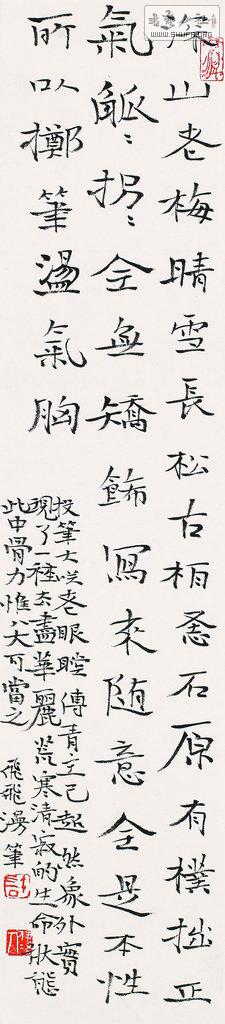 山老梅晴雪長松古柏石原有樸拙正
氣觚〻拐〻全無矯飾寫來随意全是本性
所以擲筆盪氣胸
投筆大笑老眼瞠傅青主已超然象外實
現了一種去盡華麗荒寒清寂的生命狀態
此中骨力惟八大可當之 飛飛漫筆
WWW.SHUFA.ORG